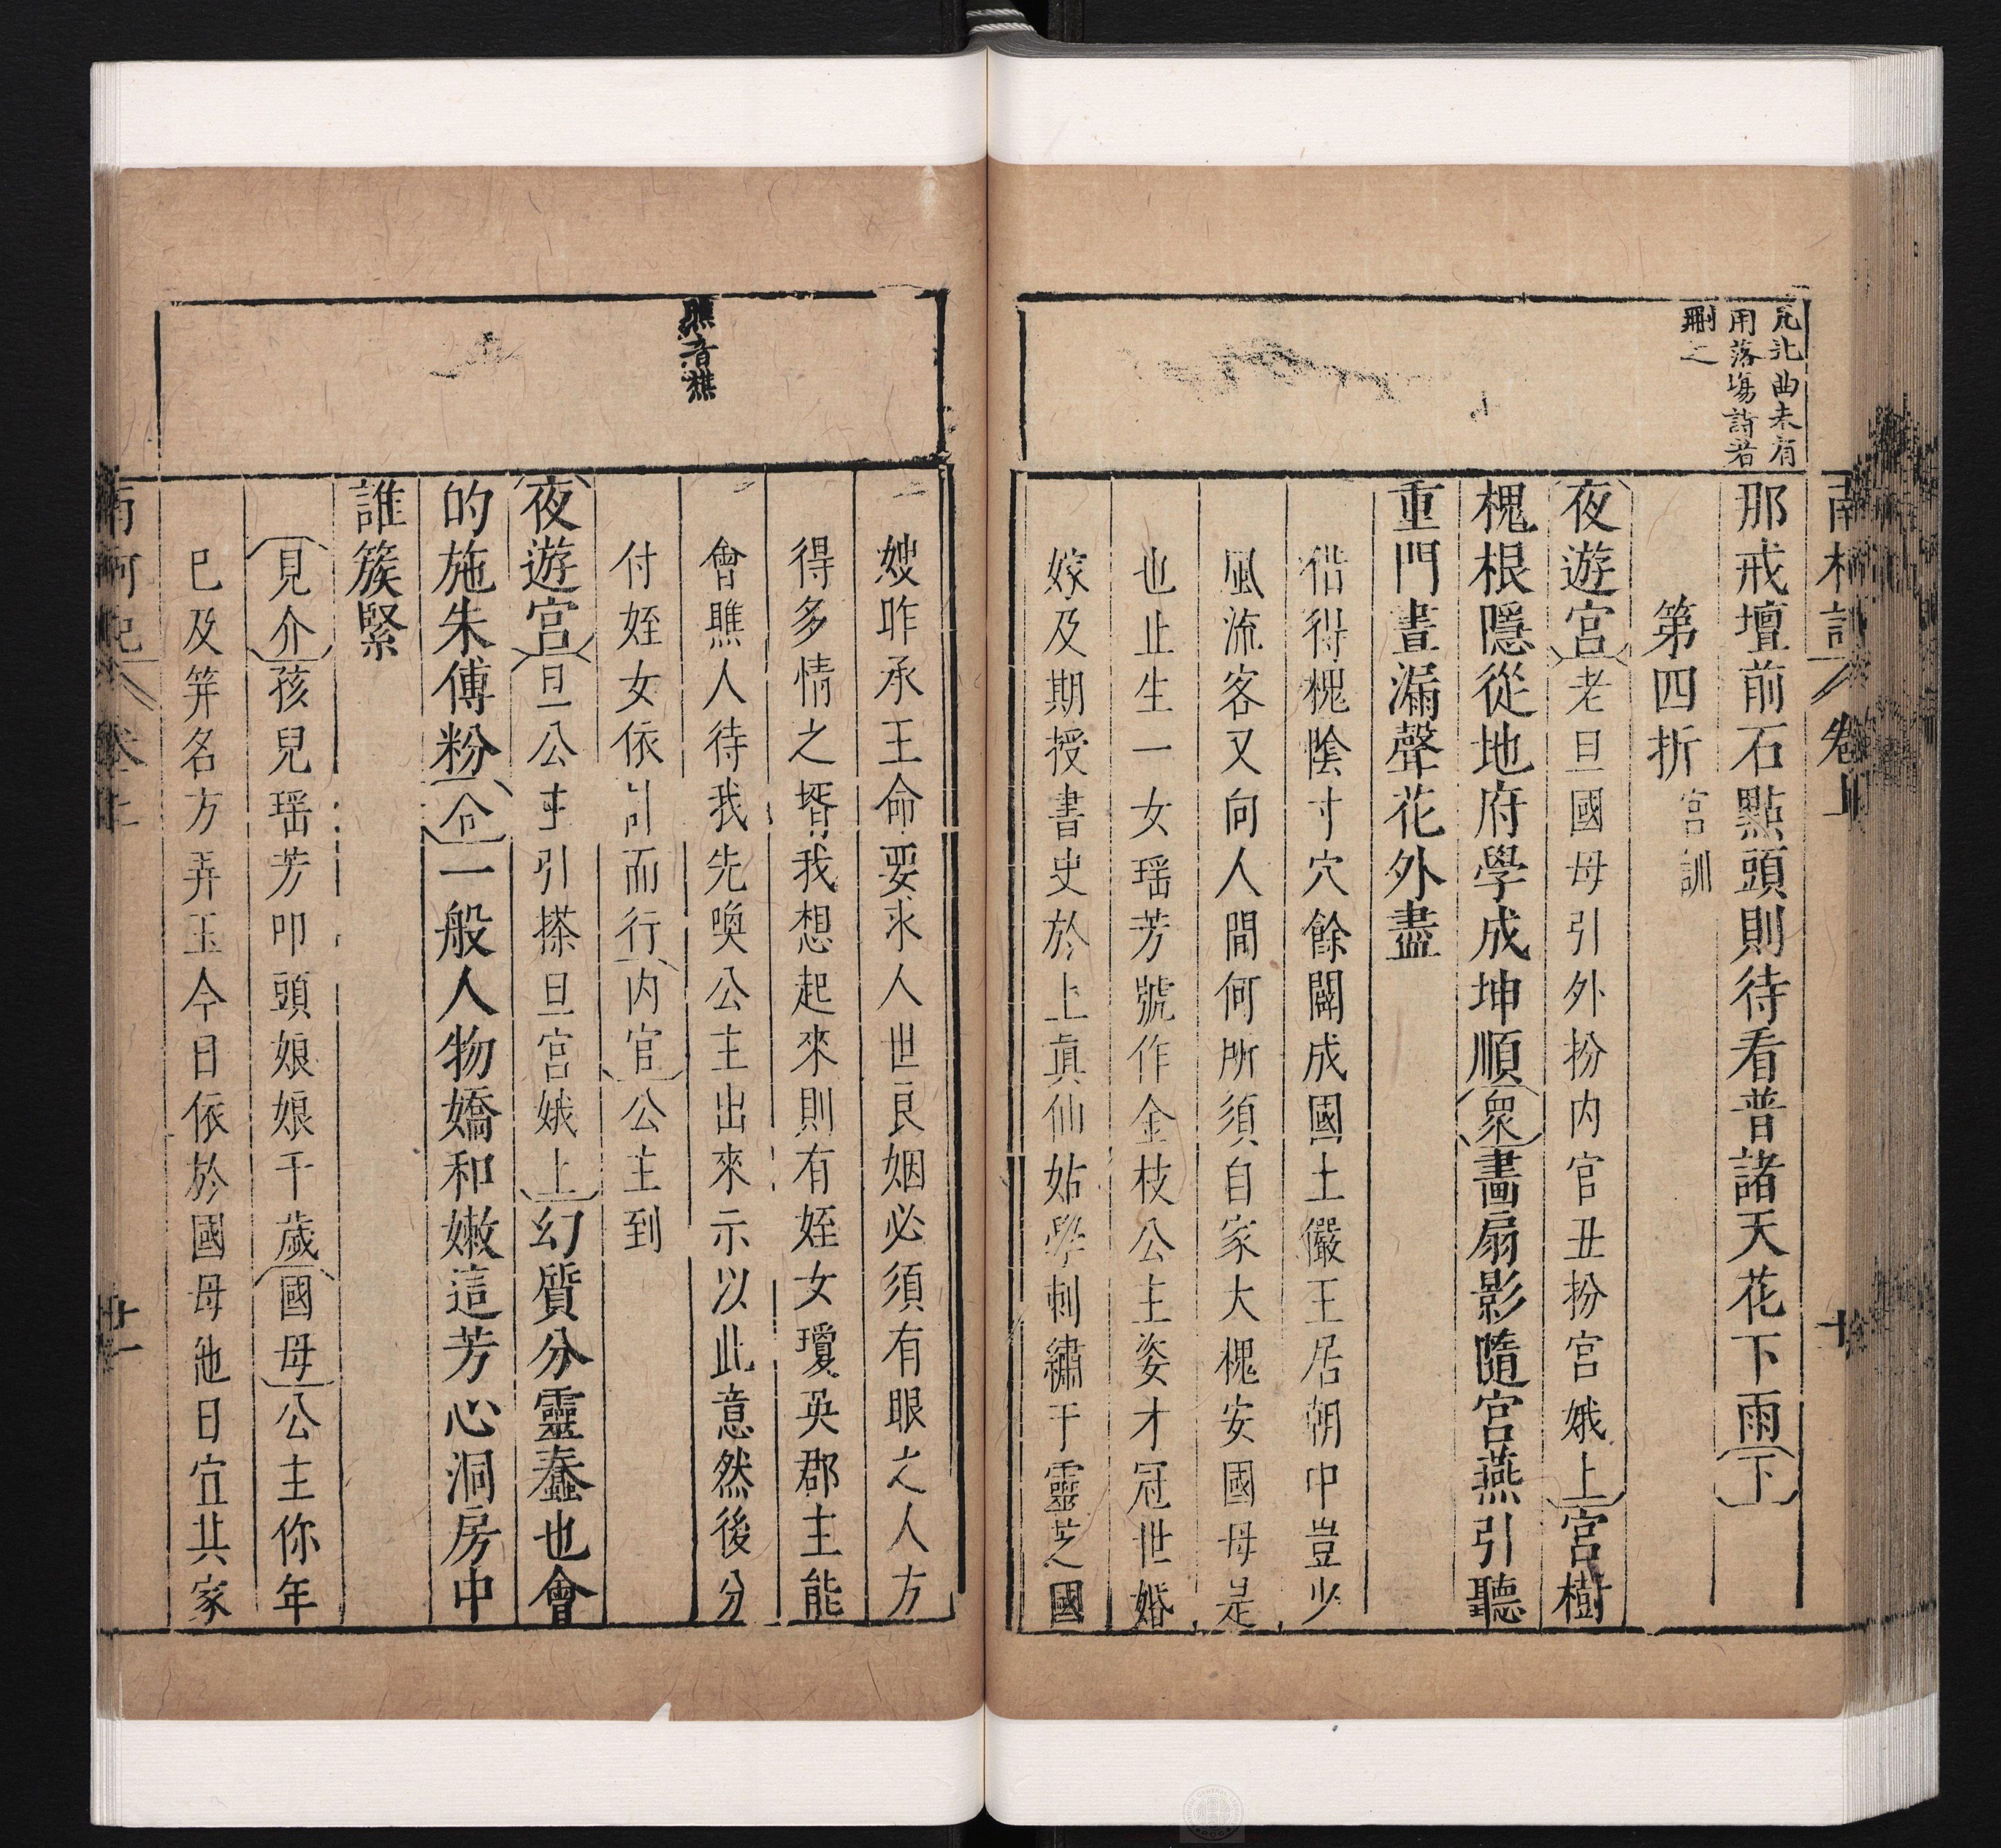 凡北曲未有
用落場詩者
刪之
那戒壇前石點頭則待看普諸天花下雨下
第四折宮訓
夜遊宮老旦國母引外扮內官丑扮宮娥上宮樹
槐根隱從地府學成坤順衆畫扇影隨宮燕引聽
重門晝漏聲花外盡
借得槐陰寸穴餘闢成國土儼王居朝中豈少
風流客又向人間何所須自家大槐安國母是
也止生一女瑶芳號作金枝公主姿才冠世婚
嫁及期授書史於上眞仙姑學刺繡于靈芝國
瞧音樵
嫂昨承王命要求人世良姻必須有眼之人方
得多情之壻我想起來則有姪女瓊英郡主能
會瞧人待我先喚公主出來示以此意然後分
付姪女依計而行內官公主到
夜遊宮旦公主引搽旦宮娥上幻質分靈蠢也會
的施朱傅粉合一般人物嬌和嫩這芳心洞房中
誰簇緊
見介孩兒瑶芳叩頭娘娘千歲國母公主你年
已及笄名方弄玉今日依於國母他日宜其家
南柯記 卷上 廿一